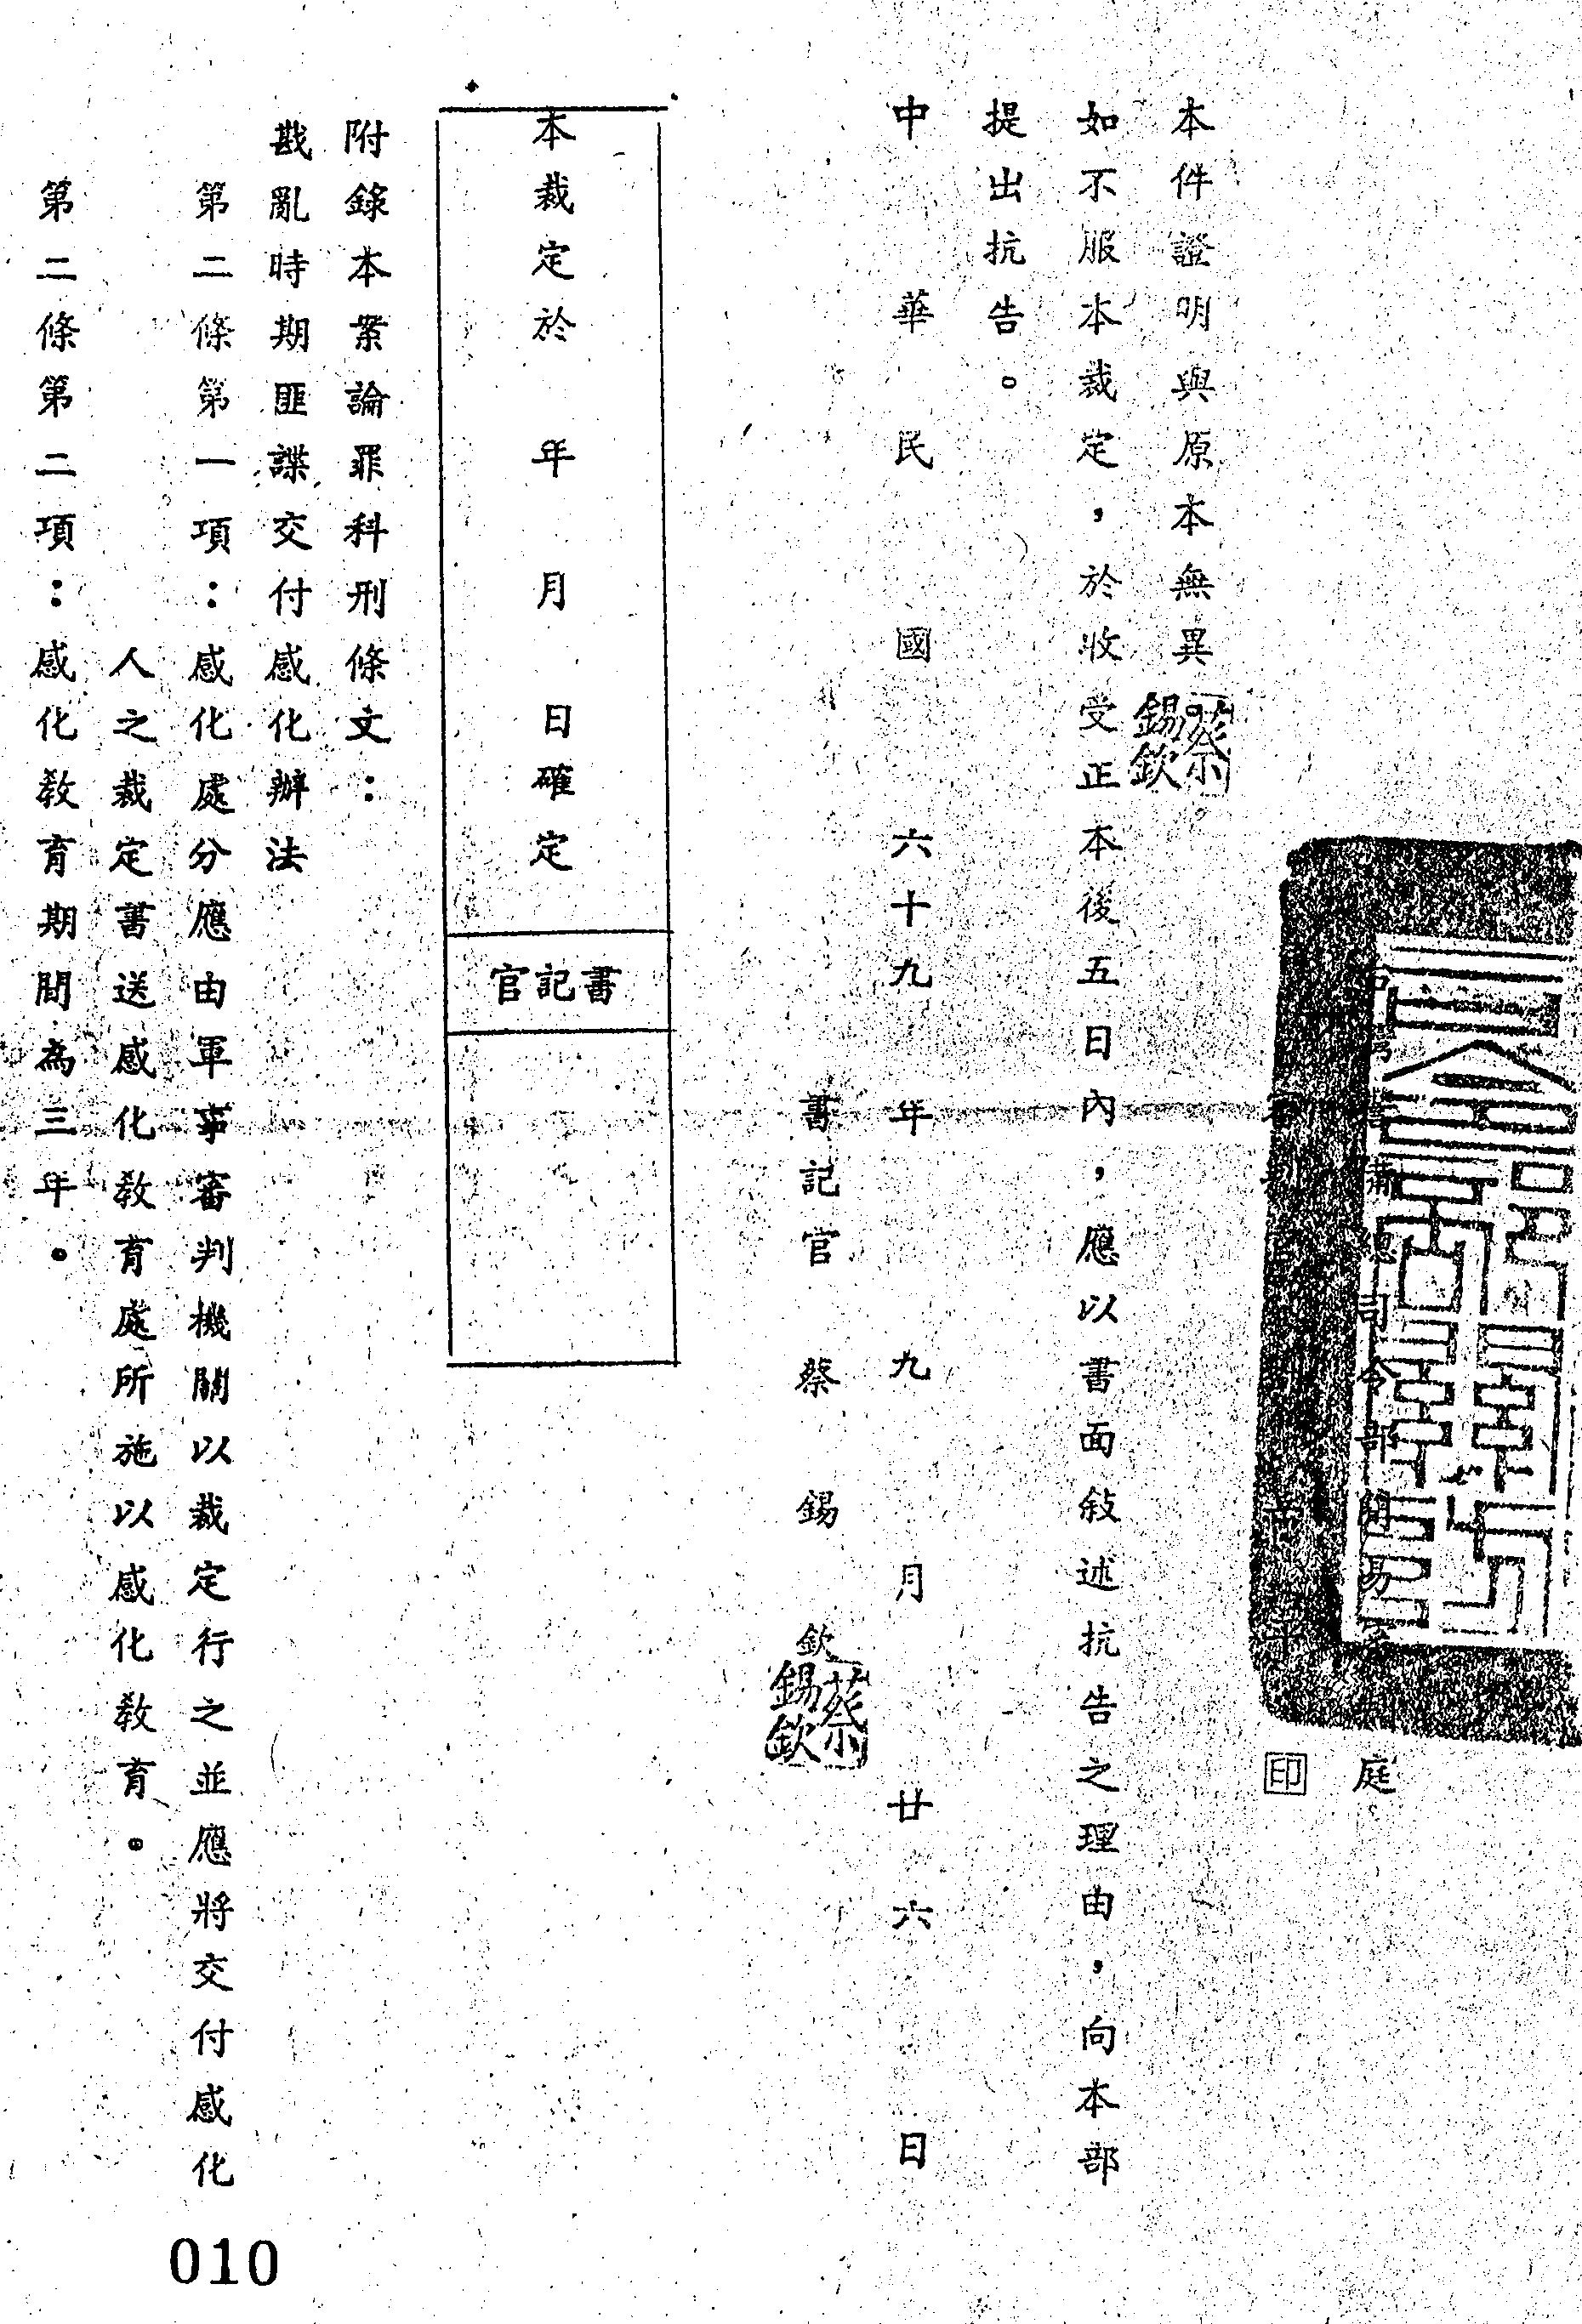 台灣警備總司令部簡易審判庭
審判官
印
本件證明與原本無異
蔡錫欽
如不服本裁定，於收受正本後五日內，應以書面敍述抗告之理由，向本部
提出抗告。
中華民國六十九年九月廿六日
書記官 蔡錫欽
蔡錫欽
本裁定於 年 月 日確定
書記官
附錄本案論罪科刑條文：
戡亂時期匪諜交付感化辦法
第二條第一項：感化處分應由軍事審判機關以裁定行之並應將交付感化
人之裁定書送感化教育處所施以感化教育。
第二條第二項：感化教育期間為三年。
010